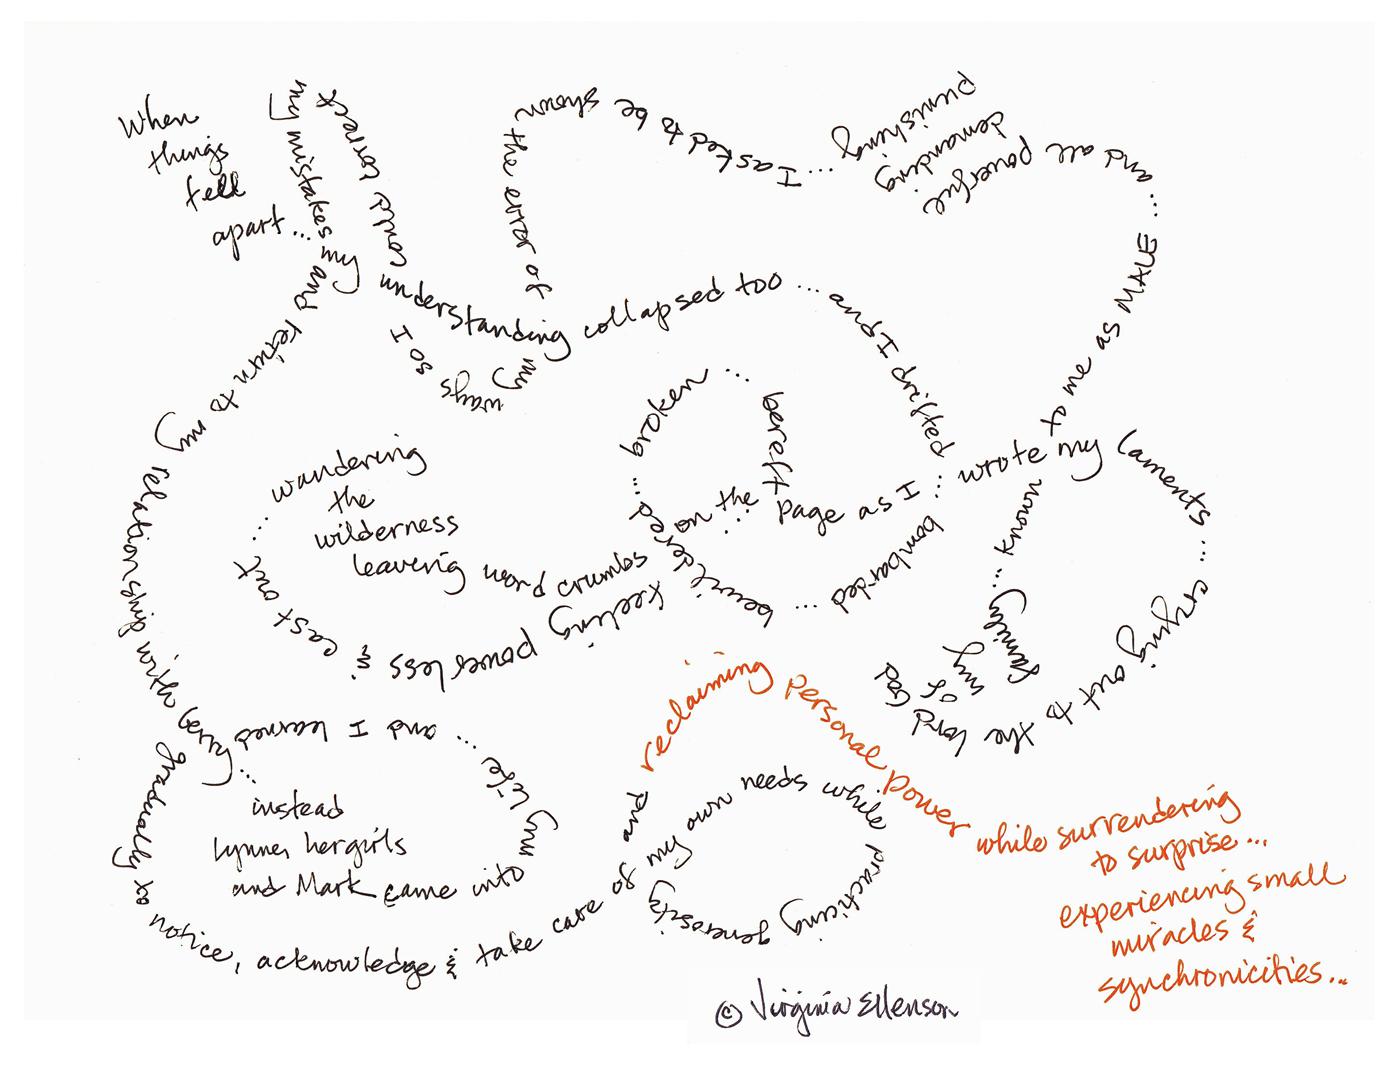 When
things
fell
apart...
my understanding collapsed too ... and I drifted ... bombarded ... bewildered ... broken ... bereft ... feeling powerless & cast out ...
wandering
the
wilderness
leaving word crumbs on the page as I wrote my laments ... crying out to the Lord God
of
my
family ... known to me as MALE ... and all
powerful
demanding
punishing
... I asked to be shown the error of my ways so I could correct my mistakes and return to my relationship with Gerry...
instead
Lynne, her girls
and Mark came into my life ... and I learned gradually to notice, acknowledge & take care of my own needs while practicing generosity and reclaiming personal power while surrendering
to surprise ...
experiencing small
miracles &
synchronicities...
© Virginia Ellenson